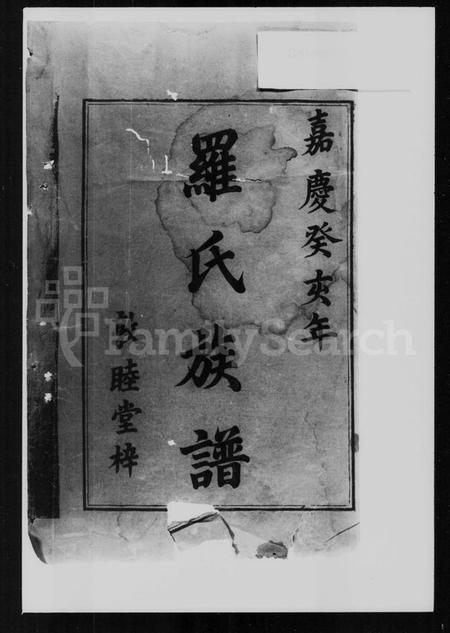 嘉慶癸亥年
羅氏族譜
敦睦堂梓
FamilySearch